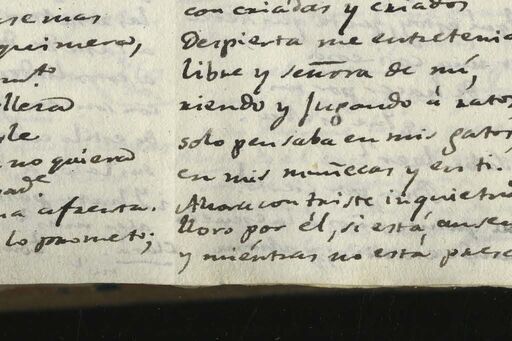 se mas
quimera,
llera
le
no quiera
na afrenta.
lo prometo;
con criadas y criados
Despierta me entretenia
libre y señora de mí,
riendo y jugando á ratos
solo pensaba en mis gatos,
en mis muñecas y en ti.
Ahora con triste inquietu
lloro por él, si está ausen
y miéntras no está prese